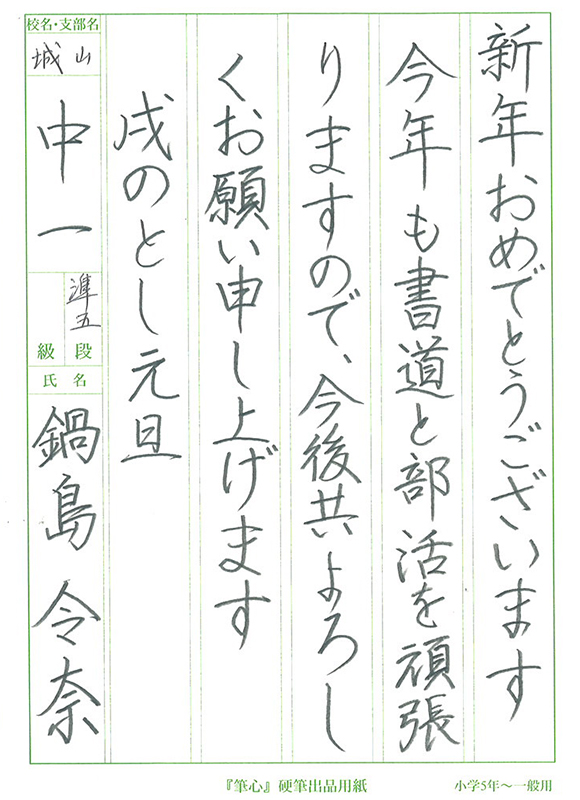 新年おめでとうございます
今年も書道と部活を頑張
りますので、今後共よろし
くお願い申し上げます
戌のとし元旦
校名・支部名
城山
中一
準五
段級
氏名
鍋島令奈
『筆心』硬筆出品用紙
小学5年〜一般用